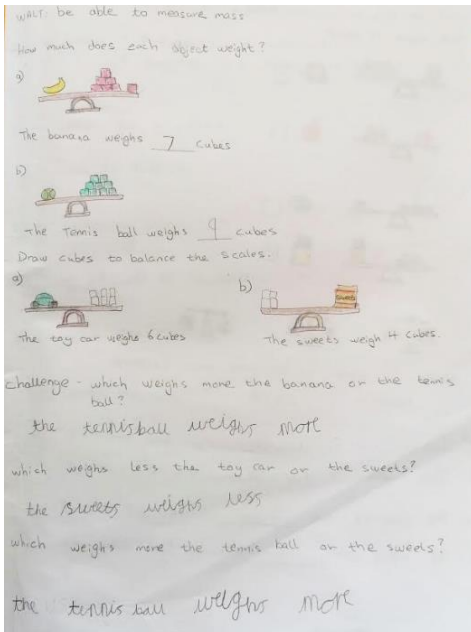 WALT: be able to measure mass
How much does each object weight?
a)
The banana weighs 7 cubes
b)
The Tennis ball weighs 9 cubes
Draw cubes to balance the scales.
a)
b)
sweets
The toy car weighs 6 cubes
The sweets weigh 4 cubes.
Challenge - which weighs more the banana or the tennis
ball?
the tennisball weighs more
which weighs less the toy car or the sweets?
the sweets weighs less
which weighs more the tennis ball or the sweets?
the tennis ball weighs more